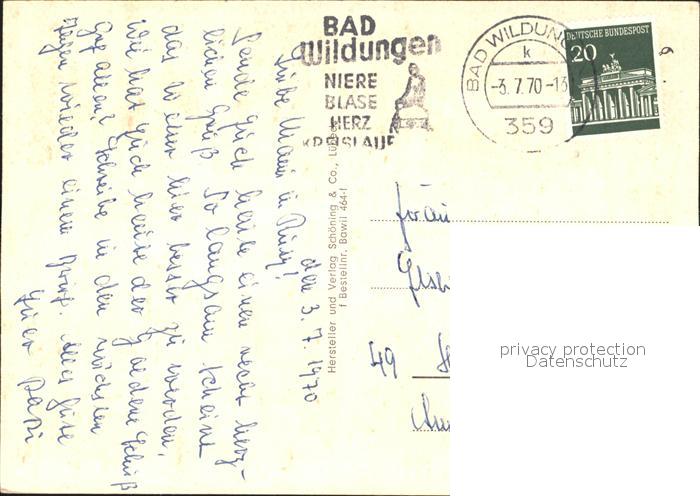 BAD
Wildungen
NIERE
BLASE
HERZ
KREISLAUF
BAD WILDUN
k
-3.7.70-13
359
DEUTSCHE BUNDESPOST
20
den 3. 7. 1970
Liebe Mami u
Sende Euch heute einen recht herz-
lichen Gruß. So langsam scheint
das Wetter hier besser zu werden.
Wie hat Euch heute der
Gefallen? Schreibe in den nächsten
Tagen wieder einen Brief. Alles Gute
Euer Papi
Hersteller und Verlag Schöning & Co., Lübeck
Bestellnr. Bawil 464-f
Frau
49
privacy protection
Datenschutz